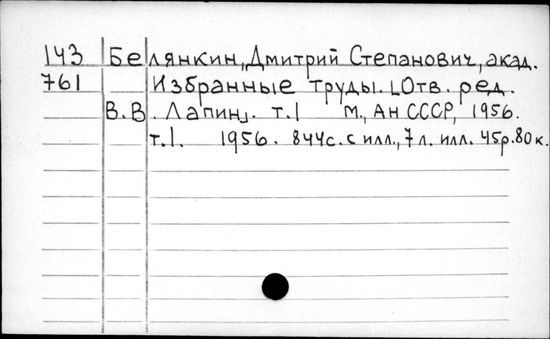 143 Белянкин, Дмитрий Степанович, акад.
761 Избранные труды. [Отв. ред.
В.В. Лапин]. т.1 М., Ан СССР, 1956.
т.1. 1956. 844с. с илл., 7 л. илл. 45р.80к.